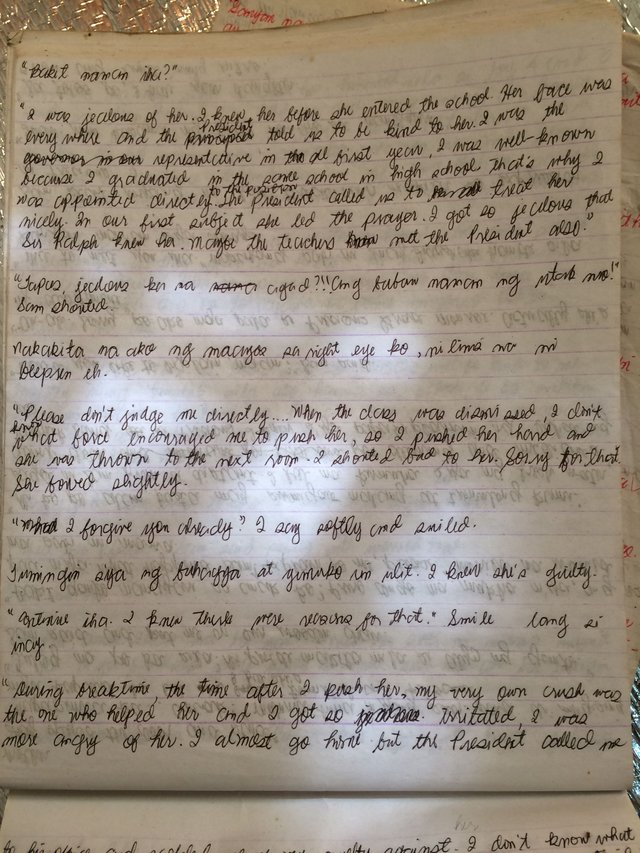 "Bakit naman iha?"
"I was jealous of her. I knew her before she entered the school. Her face was
everywhere and the president told us to be kind to her. I was the
representative in the all first year, I was well-known
because I graduated in the same school in high school that's why I
was appointed directly to the position. The president called us to treat her
nicely. In our first subject she led the prayer. I got so jealous that
Sir Ralph knew her. Maybe the teachers met the President also."
"Tapos, jealous ka na agad?!! Ang babaw naman ng utak mo!"
Sam shouted.
nakakita na ako ng maayos sa right eye ko, nilinis na ni
eh.
"Please don't judge me directly.... When the class was dismissed, I don't
know what force encouraged me to push her, so I pushed her hard and
she was thrown to the next room. I shouted bad to her. Sorry for that.
She bowed slightly.
I forgive you already? I say softly and smiled.
Tumingin siya ng bahagya at yumuko un ulit. I knew she's guilty.
iha. I knew there were reasons for that." Smile lang si
"During breaktime, the time after I push her, my very own crush was
the one who helped her and I got so irritated, I was
more angry of her. I almost go home but the President called me
to his office and against. I don't know what